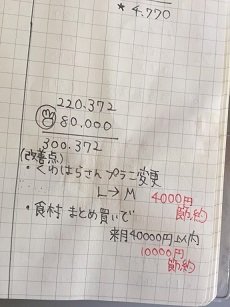 ★ 4,770
220.372
80.000
300.372
(改善点)
・くわはらさん プラン変更
L→M 4000円
節約
・食材 まとめ買いで
来月40000円以内
10000円
節約